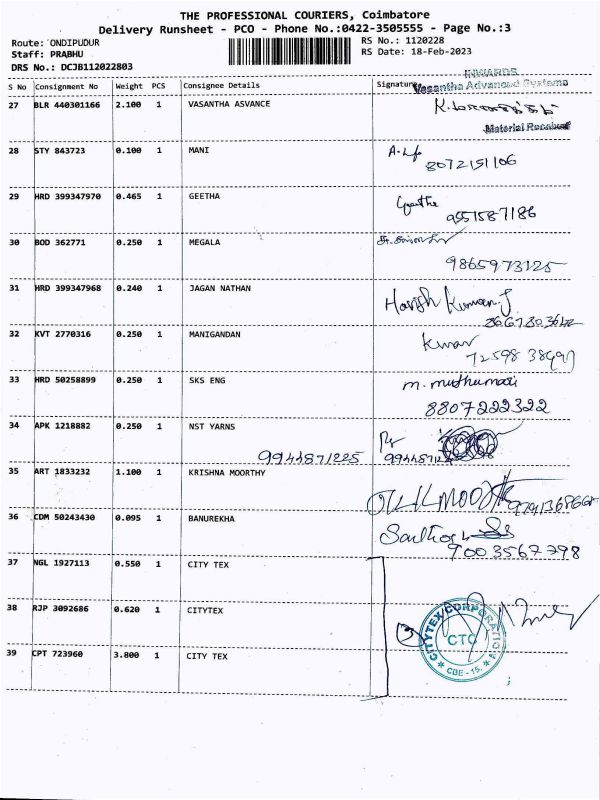 THE PROFESSIONAL COURIERS, Coimbatore
Delivery Runsheet - PCO - Phone No.:0422-3505555 - Page No.:3
Route: ONDIPUDUR
RS No.: 1120228
Staff: PRABHU
RS Date: 18-Feb-2023
DRS No.: DCJB112022803
INWARDS
S No Consignment No Weight PCS Consignee Details Signature
Vasantha Advanced Systems
27 BLR 440301166 2.100 1 VASANTHA ASVANCE
Material Received
28 STY 843723 0.100 1 MANI
8072151106
29 HRD 399347970 0.465 1 GEETHA Geetha
9551587186
30 BOD 362771 0.250 1 MEGALA
9865973125
31 HRD 399347968 0.240 1 JAGAN NATHAN Harish Kumar.J
32 KVT 2770316 0.250 1 MANIGANDAN Kumar
33 HRD 50258899 0.250 1 SKS ENG m. muthumari
8807222322
34 APK 1218882 0.250 1 NST YARNS
9944871225
35 ART 1833232 1.100 1 KRISHNA MOORTHY
36 CDM 50243430 0.095 1 BANUREKHA
9003567798
37 NGL 1927113 0.550 1 CITY TEX
38 RJP 3092686 0.620 1 CITYTEX
39 CPT 723960 3.800 1 CITY TEX
CITYTEX CORPORATION
CTC
CBE - 15.